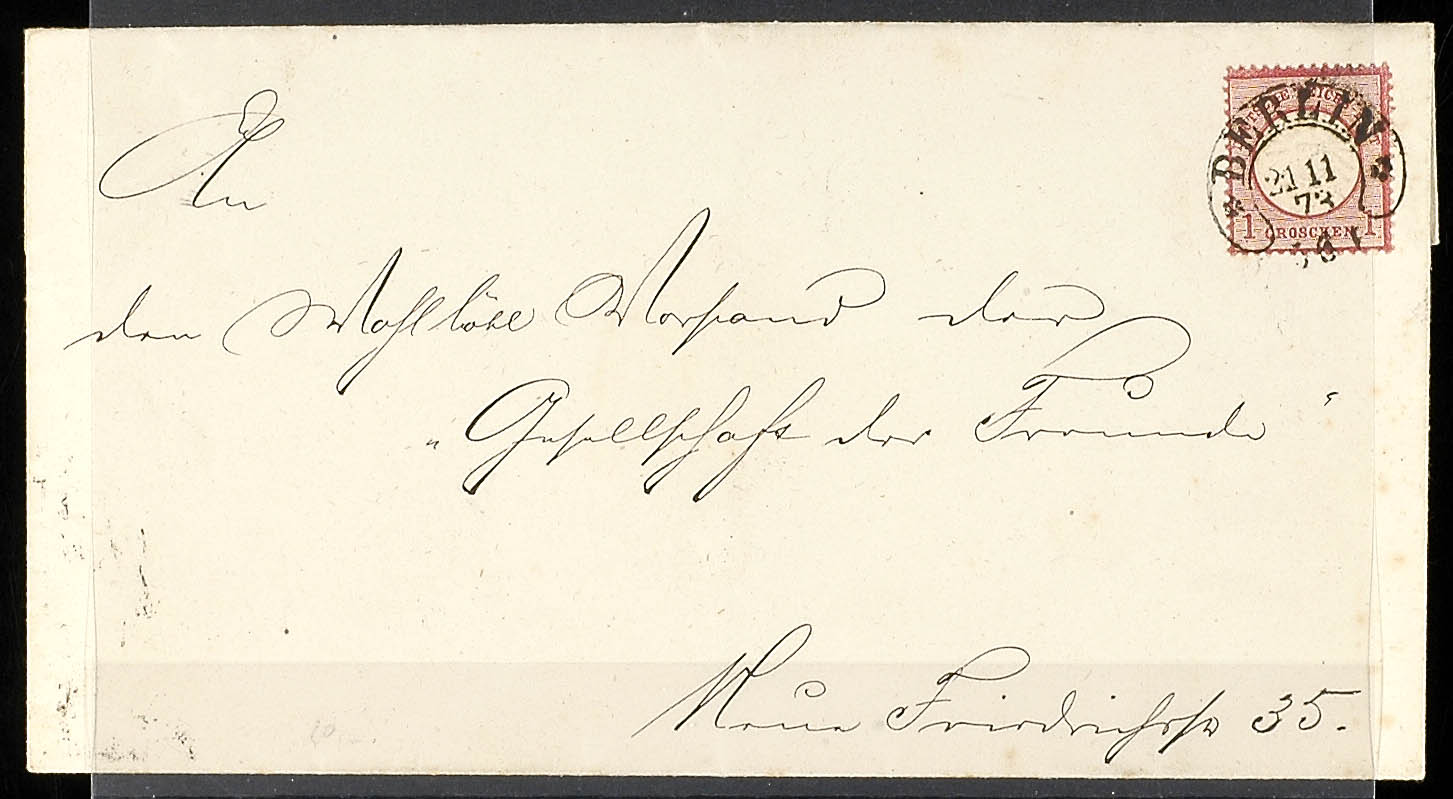 BERLIN
21 11
73
1 GROSCHEN 1
An
den Wohllöbl Vorstand der
„Gesellschaft der Freunde“
Neue Friedrichstr 35.